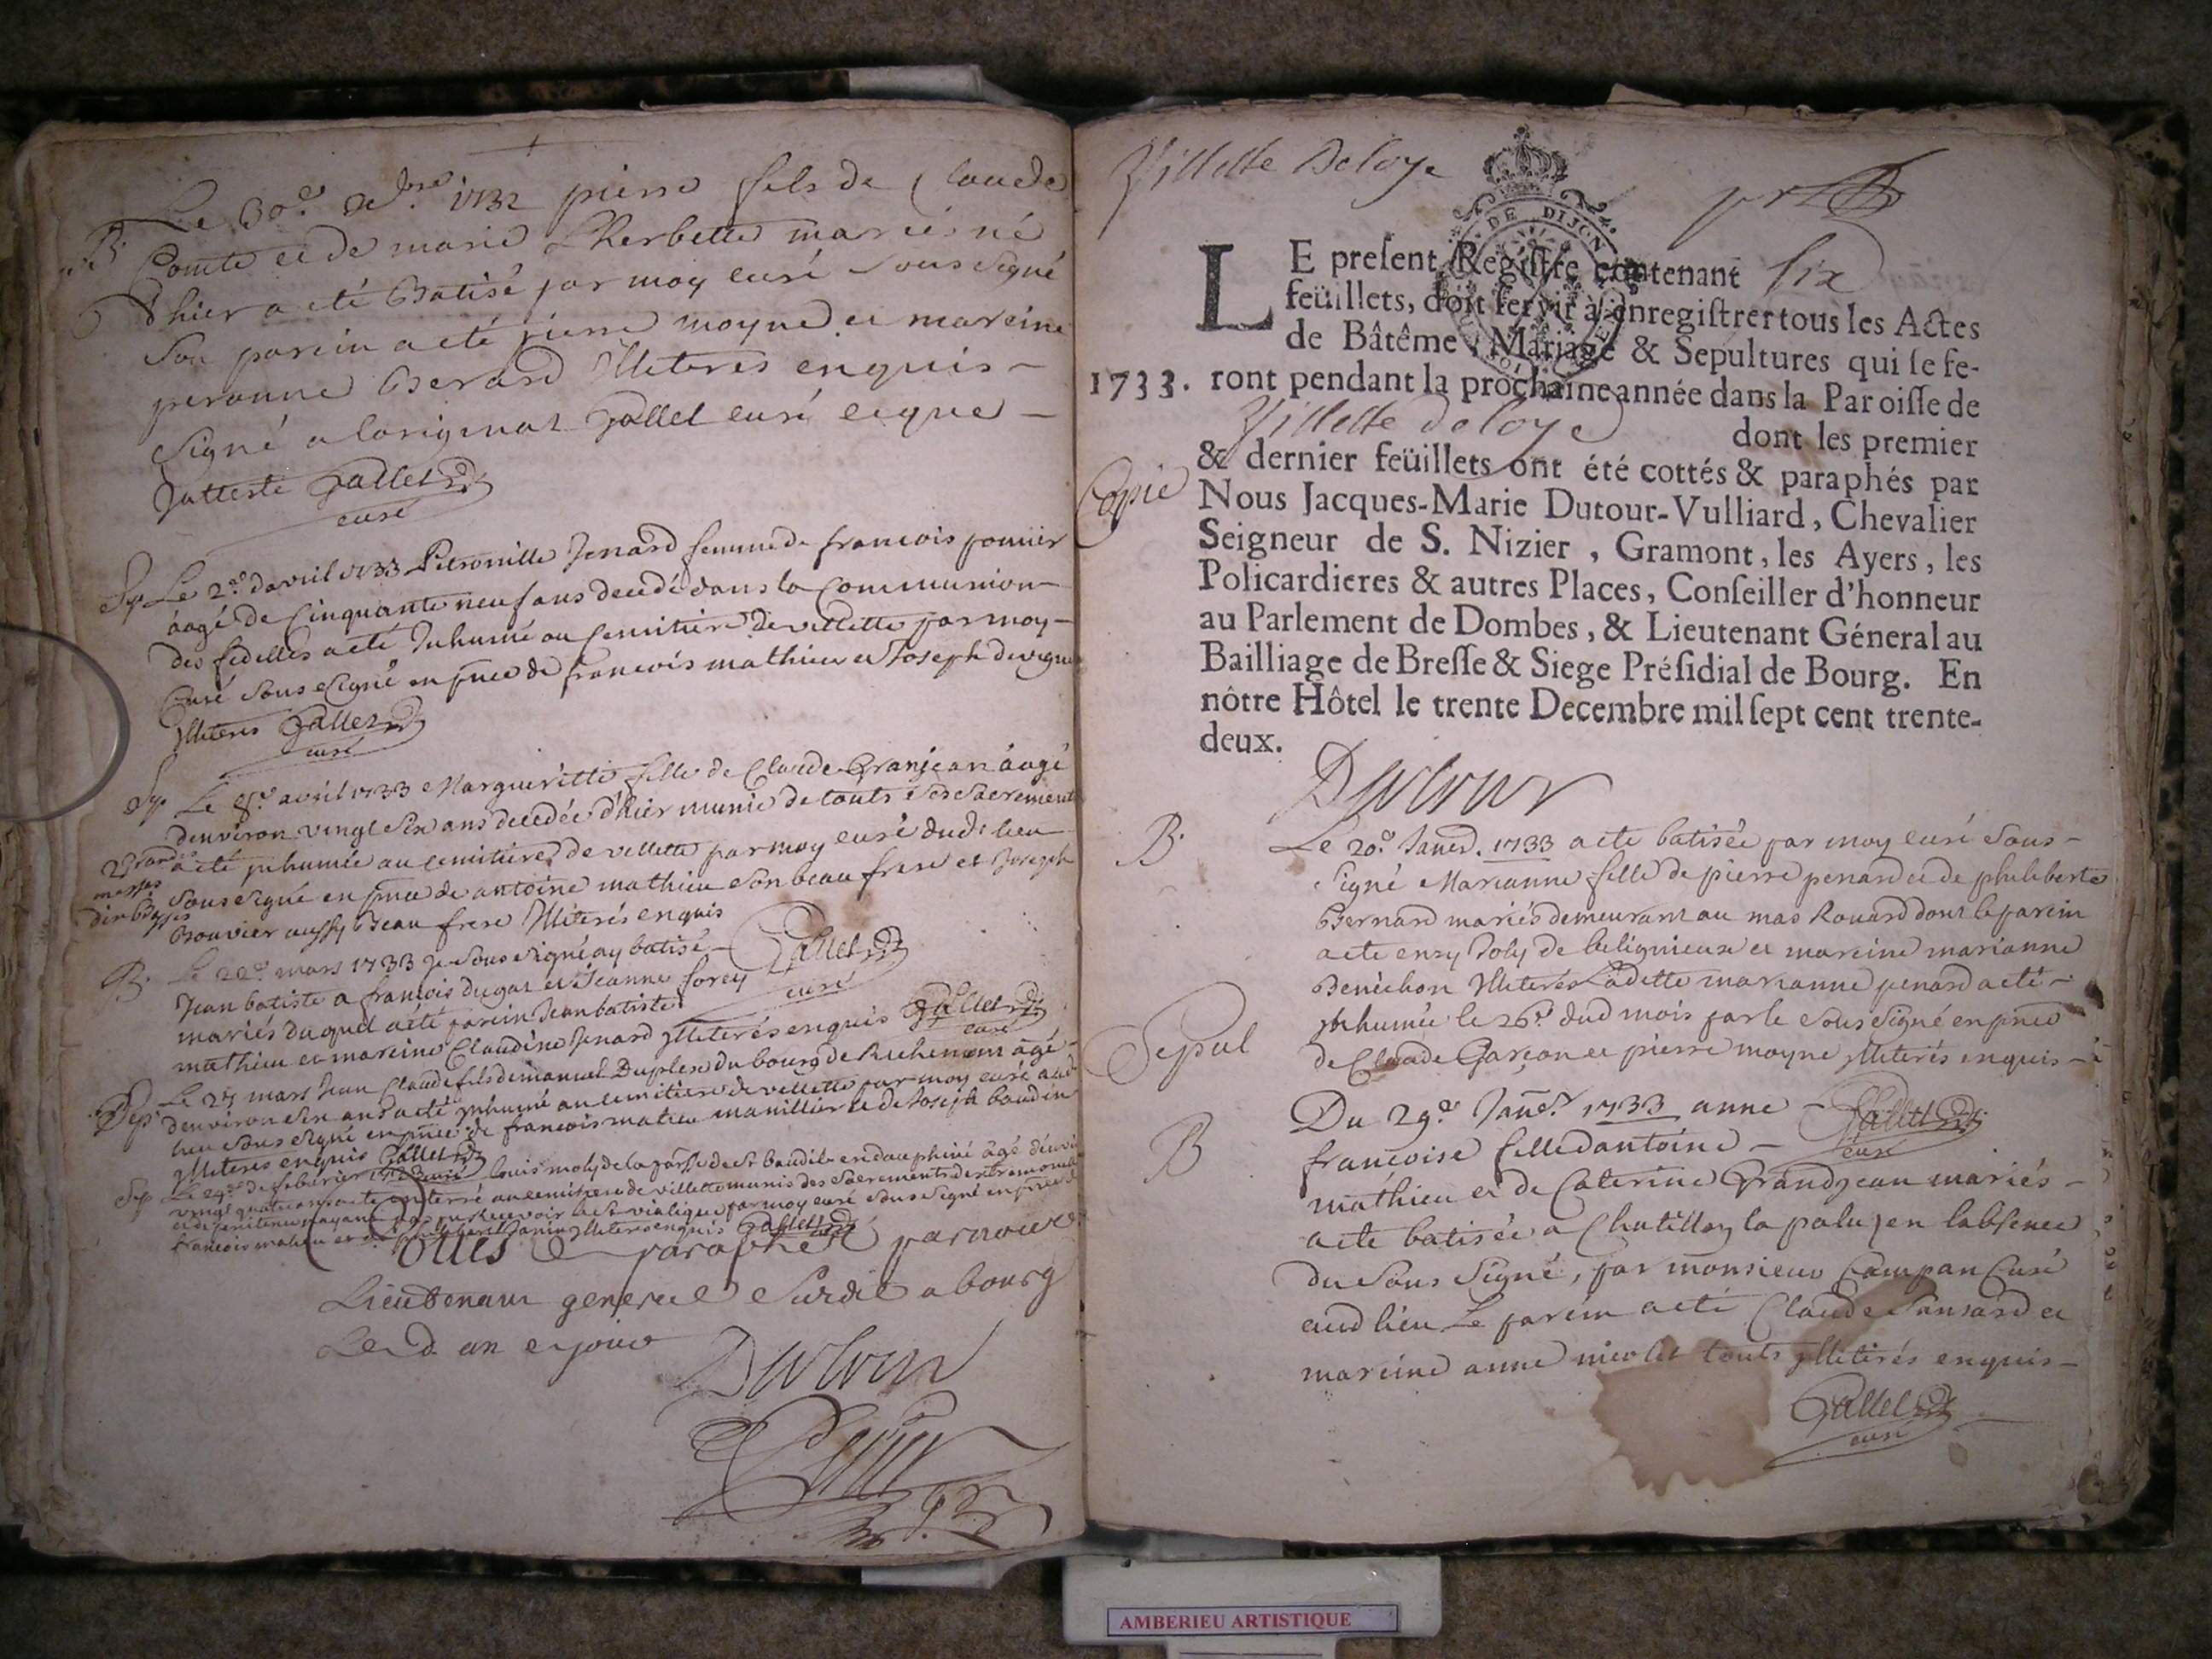 B. Le 30e xbre 1732 pierre fils de Claude
Comte et de marie Lherbette mariés né
d'hier a eté Batisé par moy curé sous signé
son parein a eté pierre moyne et mareine
peronne Berard Illiteres enquis -
signé a loriginal Gallet curé ce que -
Jatteste Gallet
curé
Sep Le 2e davril 1733 Petronille Jenard femme de francois
áagé de Cinquante neuf ans decedé dans la Communion
des fidelles a eté Inhumé au semitiere de villette par moy
Curé sous signé en pnce de francois mathieu et Joseph
Illiteres Gallet
curé
Sep. Le 8e avril 1733 Margueritte fille de Claude Granjean áagé
denviron vingt six ans decedée d'hier munie de touts ses sacrements
a eté inhumée au cemitiere de villette par moy curé dud. lieu
sous signé en pnce de antoine mathieu son beau frere et Joseph
Bouvier aussy Beau frere Illiterés enquis
Gallet
curé
B. Le 22e mars 1733 Je sous signé ay batisé
Jean batiste a francois dugat et Jeanne forey
mariés duquel a eté parein Jean batiste
mathieu et mareine Claudine Jenard Illiterés enquis Gallet
curé
Sep Le 27 mars Jean Claude fils demanuel Duplex du bourg de Richemont ágé
denviron six ans a eté inhumé au cemitiere de villette par moy curé aud
lieu sous signé en pnce de francois matieu manillier et de Joseph baudin
Illiteres enquis Gallet
curé
Sep Le 24e de feburier 1733 louis moly de la de St baudile en dauphiné ágé
vingt quatre ans a eté enterré au cemitiere de villette munis des sacrements
et de penitence nayant pas pu Recevoir le St viatique par moy curé sous signé en pnce de
francois matieu et de Illiteres enquis Gallet
Cottés & paraphés par nous
Lieutenant general susdit a bourg
Led. an et jour
Dutour
Villette Deloye
DE DIJON
LE present Registre contenant six
feüillets, doit servir à enregistrer tous les Actes
de Bâtême, Mariage & Sepultures qui se fe-
1733. ront pendant la prochaine année dans la Paroisse de
Villette deloye dont les premier
Copie & dernier feüillets ont été cottés & paraphés par
Nous Jacques-Marie Dutour-Vulliard, Chevalier
Seigneur de S. Nizier, Gramont, les Ayers, les
Policardieres & autres Places, Conseiller d'honneur
au Parlement de Dombes, & Lieutenant Géneral au
Bailliage de Bresse & Siege Présidial de Bourg. En
nôtre Hôtel le trente Decembre mil sept cent trente-
deux.
Dutour
B. Le 20e Janv. 1733 a eté batisée par moy curé sous-
signé Marianne fille de pierre penard et de philiberte
Bernard mariés demeurant au mas Rouard dont le parein
a eté enry Joly de belignieux et mareine marianne
Benichon Illiterés Ladette marianne penard a eté -
Sepul Inhumée le 26e dud mois par le sous signé en pnce
de Claude Garçon et pierre moyne Illiterés enquis -
B Du 29e Janer. 1733 anne - Gallet
curé
francoise fille dantoine -
mathieu et de Caterine Grandjean mariés -
a eté batisée a Chatillon la palu, en labsence
du sous signé, par monsieur Campan Curé
aud lieu Le parein a eté Claude Jansard et
mareine anne nicolet touts Illiterés enquis -
Gallet
curé
AMBERIEU ARTISTIQUE